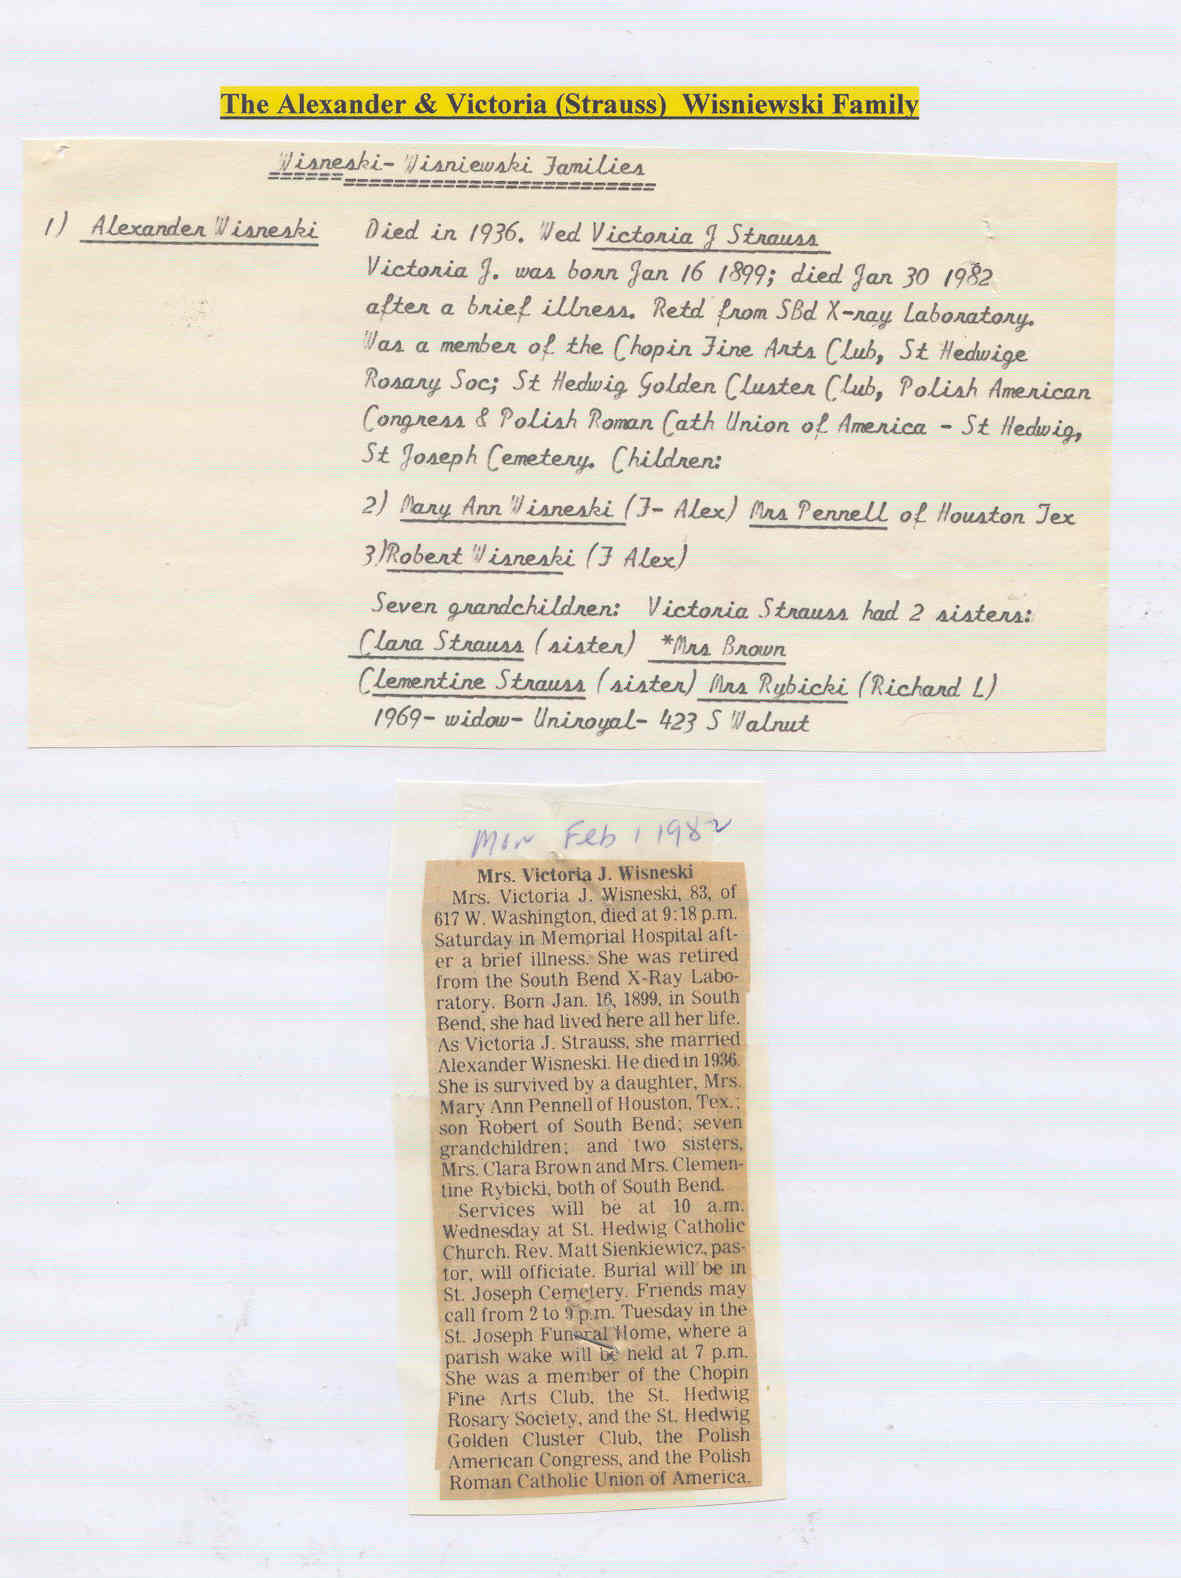 The Alexander & Victoria (Strauss)  Wisniewski Family
Wisneski- Wisniewski Families
1) Alexander Wisneski Died in 1936. Wed Victoria J Strauss
Victoria J. was born Jan 16 1899; died Jan 30 1982
after a brief illness. Retd from SBd X-ray Laboratory.
Was a member of the Chopin Fine Arts Club, St Hedwige
Rosary Soc; St Hedwig Golden Cluster Club, Polish American
Congress & Polish Roman Cath Union of America - St Hedwig,
St Joseph Cemetery. Children:
2) Mary Ann Wisneski (F- Alex) Mrs Pennell of Houston Tex
3) Robert Wisneski (F Alex)
Seven grandchildren: Victoria Strauss had 2 sisters:
Clara Strauss (sister) *Mrs Brown
Clementine Strauss (sister) Mrs Rybicki (Richard L)
1969- widow- Uniroyal- 423 S Walnut
Mon Feb 1 1982
Mrs. Victoria J. Wisneski
Mrs. Victoria J. Wisneski, 83, of
617 W. Washington, died at 9:18 p.m.
Saturday in Memorial Hospital aft-
er a brief illness. She was retired
from the South Bend X-Ray Labo-
ratory. Born Jan. 16, 1899, in South
Bend, she had lived here all her life.
As Victoria J. Strauss, she married
Alexander Wisneski. He died in 1936.
She is survived by a daughter, Mrs.
Mary Ann Pennell of Houston, Tex.;
son Robert of South Bend; seven
grandchildren; and two sisters,
Mrs. Clara Brown and Mrs. Clemen-
tine Rybicki, both of South Bend.
Services will be at 10 a.m.
Wednesday at St. Hedwig Catholic
Church. Rev. Matt Sienkiewicz, pas-
tor, will officiate. Burial will be in
St. Joseph Cemetery. Friends may
call from 2 to 9 p.m. Tuesday in the
St. Joseph Funeral Home, where a
parish wake will be held at 7 p.m.
She was a member of the Chopin
Fine Arts Club, the St. Hedwig
Rosary Society, and the St. Hedwig
Golden Cluster Club, the Polish
American Congress, and the Polish
Roman Catholic Union of America.